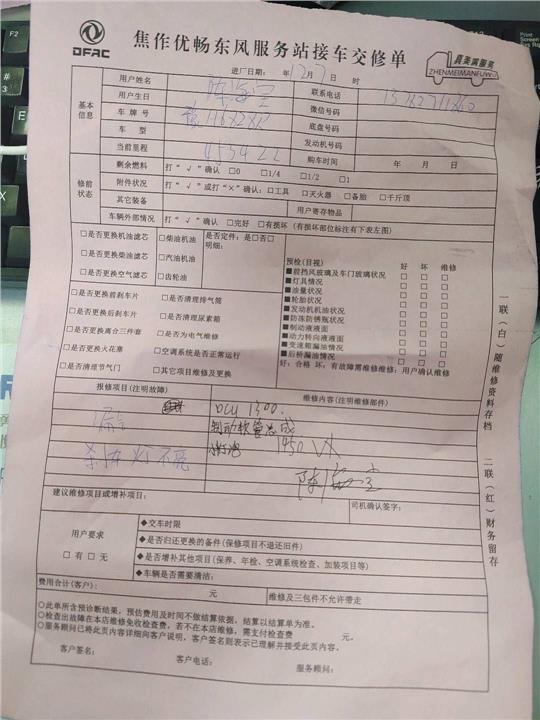 DFAC
焦作优畅东风服务站接车交修单
真美满服务
ZHENMEIMANFUWU
进厂日期： 年 12月 7日 时
基本信息
用户姓名
联系电话
用户生日
微信号码
车牌号
底盘号码
车型
发动机号码
当前里程 453422
购车时间 年 月 日
修前状态
剩余燃料 打“√”确认 □0 □1/4 □1/2 □1
附件状况 打“√”或打“×”确认：□工具 □灭火器 □备胎 □千斤顶
其它装备
用户寄存物品
车辆外部情况 打“√”确认 □完好 □有损坏（有损坏部位标注有下表左图）
□是否更换机油滤芯 □柴油机油
□是否更换柴油滤芯 □汽油机油
□是否更换空气滤芯 □齿轮油
是否定件：是□否□
明细：
□是否更换前刹车片 □是否清理排气筒
□是否更换后刹车片 □是否清理尿素箱
□是否更换离合三件套 □是否为电气维修
□是否更换火花塞 □空调系统是否正常运行
□是否清理节气门 □其它项目维修及更换
预检(目视) 好 坏 维修
■前挡风玻璃及车门玻璃状况 □ □ □
■灯具情况 □ □ □
■油量状况 □ □ □
■轮胎状况 □ □ □
■发动机机油状况 □ □ □
■防冻防锈瓶状况 □ □ □
■制动液液面 □ □ □
■动力转向液液面 □ □ □
■变速箱漏油情况 □ □ □
■后桥漏油情况 □ □ □
好：合格 坏：有故障需维修维修：用户确认维修
报修项目(注明故障)
维修内容(注明维修部件)
DCU 1300.
漏气
制动软管总成
1450
刹车灯不亮
建议维修项目或增补项目：
司机确认签字：
用户要求
□有 □无
◆交车时限
◆是否归还更换的备件(保修项目不退还旧件)
◆是否增补其他项目(保养、年检、空调系统检查、加装项目等)
◆车辆是否需要清洁：
费用合计(客户)： 元
维修及三包件不允许带走
○此单所含预诊断结果，预估费用及时间不做结算依据，结算以结算单为准。
○检查出故障在本店维修免收检查费，若不在本店维修，需支付检查费 元。
○服务顾问已将此页内容详细向客户说明，客户签名则表示已理解并接受此页内容。
客户签名：
客户电话：
服务顾问：
一联（白）随维修资料存档
二联（红）财务留存